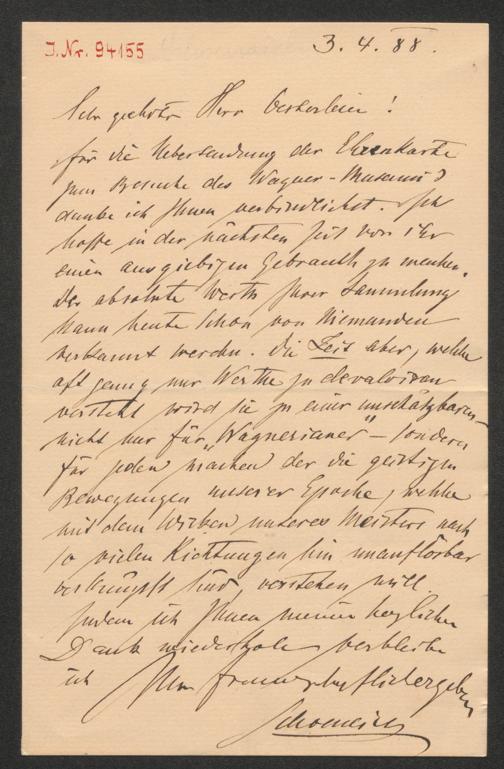 J. Nr. 94155
3. 4. 88.
Sehr geehrter Herr Oesterlein!
für die Uebersendung der Ehrenkarte
zum Besuche des Wagner-Museums
danke ich Ihnen verbindlichst. Ich
hoffe in der nächsten Zeit von ihr
einen ausgiebigen Gebrauch zu machen.
Der absolute Werth Ihrer Sammlung
kann heute schon von Niemanden
verkannt werden. Die Zeit aber, welche
oft genug nur Werthe zu devalviren
versteht wird sie zu einer unschätzbaren –
nicht nur für „Wagnerianer" – sondern
für jeden machen der die geistigen
Bewegungen unserer Epoche, welche
mit dem Wirken unseres Meisters nach
so vielen Richtungen hin unauflösbar
verknüpft sind, verstehen will
Indem ich Ihnen meinen herzlichen
Dank wiederhole verbleibe
ich Ihr freundschaftlichergeben